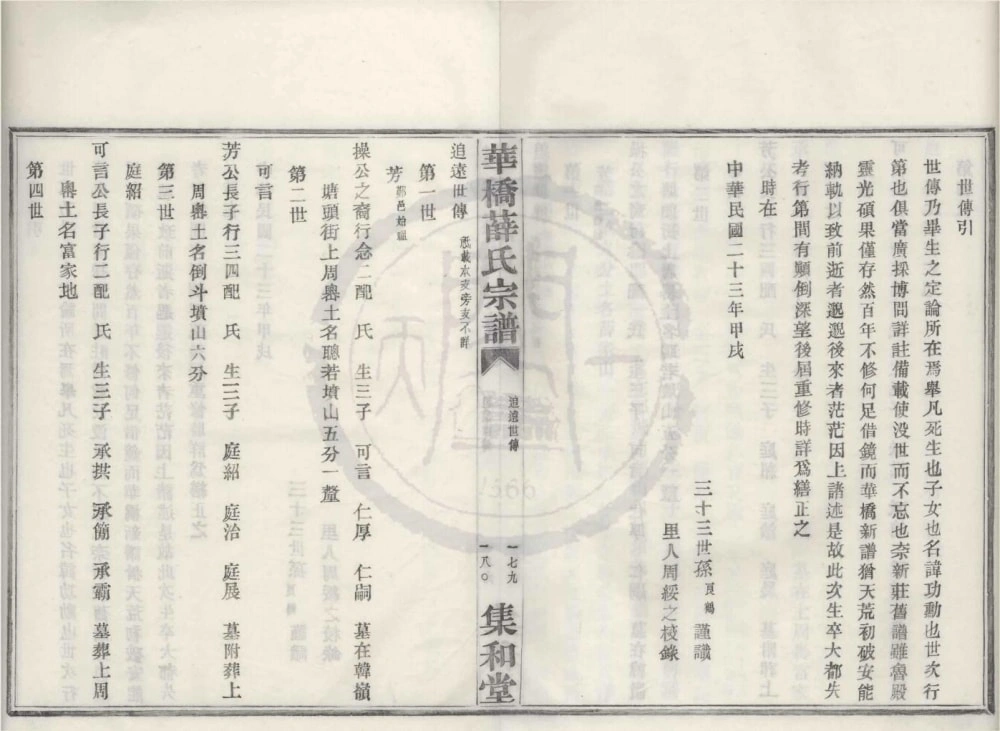 世傳引
世傳乃畢生之定論所在焉舉凡死生也子女也名諱功動也世次行
第也俱當廣採博問詳註備載使没世而不忘也奈新莊舊譜雖魯殿
靈光碩果僅存然百年不修何足借鏡而華橋新譜猶天荒初破安能
納軌以致前逝者邈邈後來者茫茫因上諸述是故此次生卒大都失
考行第間有顚倒深望後屆重修時詳爲繕正之
時在
中華民國二十三年甲戌
三十三世孫 良鶴 謹識
里人周綏之校錄
華橋薛氏宗譜
追遠世傳
一七九
一八〇
集和堂
追遠世傳 祇載水支旁支不詳
第一世
芳 鄞邑始祖
操公之裔行念二配 氏 生三子 可言 仁厚 仁嗣 墓在韓嶺
塘頭街上周嶴土名聰若墳山五分一釐
第二世
可言
芳公長子行三四配 氏 生三子 庭紹 庭治 庭展 墓附葬上
周嶴土名倒斗墳山六分
第三世
庭紹
可言公長子行二配 氏 生三子 承拱 承簡 承霸 墓葬上周
嶴土名富家地
第四世